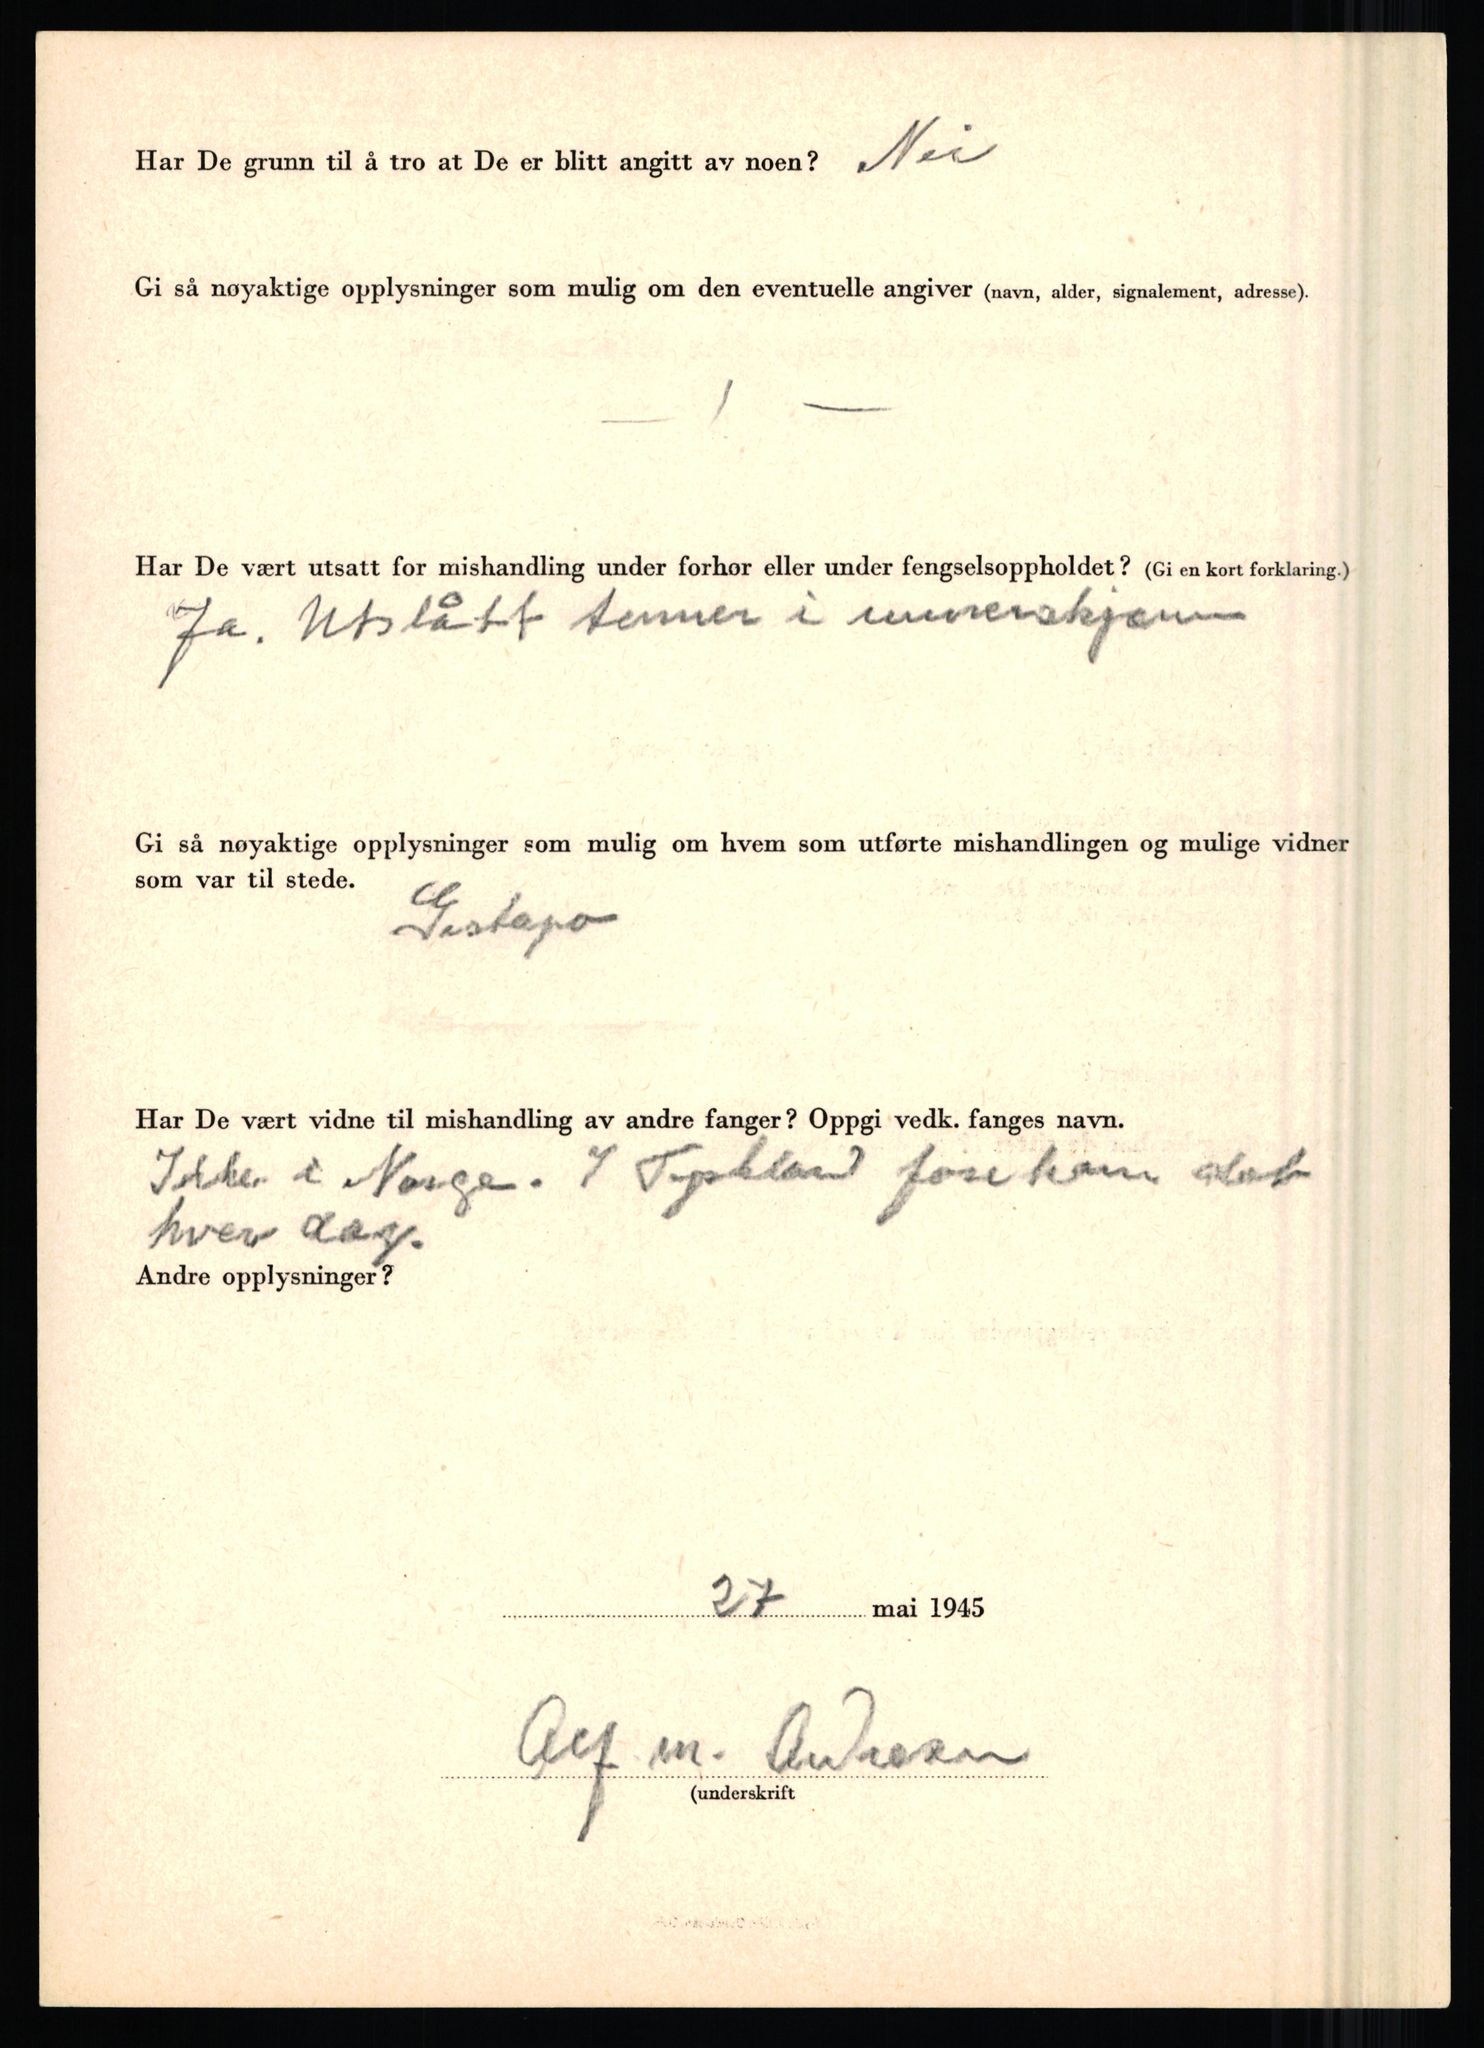 Har De grunn til å tro at De er blitt angitt av noen? Nei
Gi så nøyaktige opplysninger som mulig om den eventuelle angiver (navn, alder, signalement, adresse).
— / —
Har De vært utsatt for mishandling under forhør eller under fengselsoppholdet? (Gi en kort forklaring.)
Ja. Utslått tenner i
Gi så nøyaktige opplysninger som mulig om hvem som utførte mishandlingen og mulige vidner
som var til stede.
Gestapo
Har De vært vidne til mishandling av andre fanger? Oppgi vedk. fanges navn.
Ikke i Norge. I Tyskland forekom det
hver dag.
Andre opplysninger?
27 mai 1945
Alf M. Andresen
(underskrift